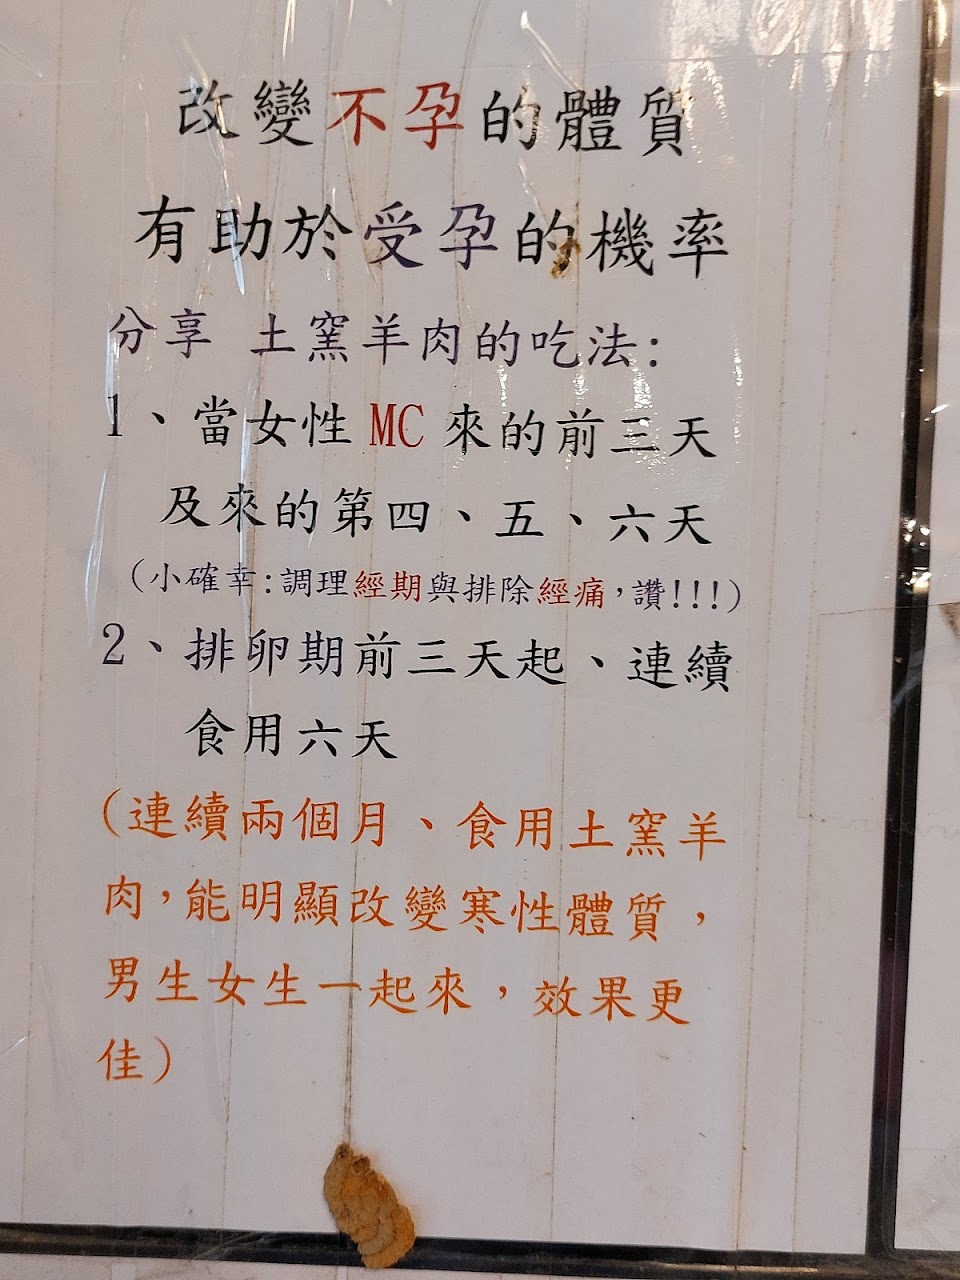 改變不孕的體質
有助於受孕的機率
分享 土窯羊肉的吃法:
1、當女性MC來的前三天
及來的第四、五、六天
(小確幸:調理經期與排除經痛,讚!!!)
2、排卵期前三天起、連續
食用六天
(連續兩個月、食用土窯羊
肉,能明顯改變寒性體質,
男生女生一起來,效果更
佳)